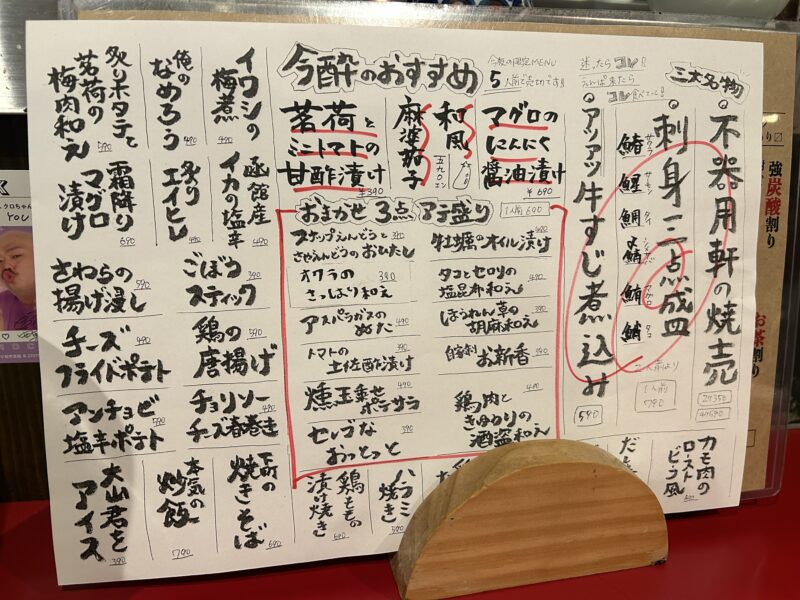 三大名物
迷ったらコレ!
コレ食べてー!!
不器用軒の焼売
2ケ350
4ケ690
刺身三点盛皿
鰆 サワラ
鯛 タイ
鮪 マグロ
蛸 タコ
2人前より
1人前
790
アツアツ牛すじ煮込み
590
今酔のおすすめ
今夜の限定MENU
5人前で売切です!!
マグロの
にんにく
醤油漬け
¥690
和風
麻婆茄子
五九〇エン
茗荷と
ミニトマトの
甘酢漬け
¥390
イワシの
梅煮
490
俺の
なめろう
490
炙りホタテと
茗荷の
梅肉和え
590
函館産
イカの塩辛
490
炙り
エイヒレ
490
霜降り
マグロ
漬け
690
おまかせ3点アテ盛り
1人前690
スナップえんどうと
さやえんどうのおひたし
390
オクラの
さっぱり和え
390
アスパラガスの
ぬた
490
トマトの
土佐酢漬け
390
燻玉乗せ
ポテサラ
490
セレブな
おっとっと
390
牡蠣のオイル漬け
490
タコとセロリの
塩昆布和え
490
ほうれん草の
胡麻和え
390
自家製
お新香
390
鶏肉と
きゅうりの
酒盗和え
490
さわらの
揚げ浸し
590
ごぼう
スティック
390
チーズ
フライドポテト
490
鶏の
唐揚げ
590
アンチョビ
塩辛ポテト
590
チョリソー
チーズ春巻き
490
カモ肉の
ロースト
ビーフ風
ハラミ
焼き
鶏ももの
漬け焼き
690
下町の
焼きそば
690
本気の
炒飯
790
大山君を
アイス
390
強炭酸割り
お茶割り
クロちゃん
YOU